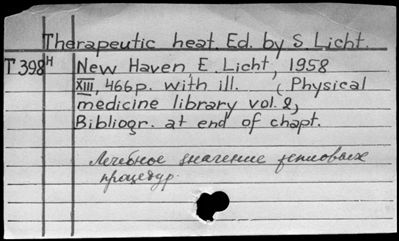 Therapeutic heat. Ed. by S. Licht.
T 398 H New Haven, E. Licht, 1958
XIII, 466p. with ill. (Physical
medicine library vol. 2,
Bibliogr. at end of chapt.
Лечебное значение тепловых
процедур.